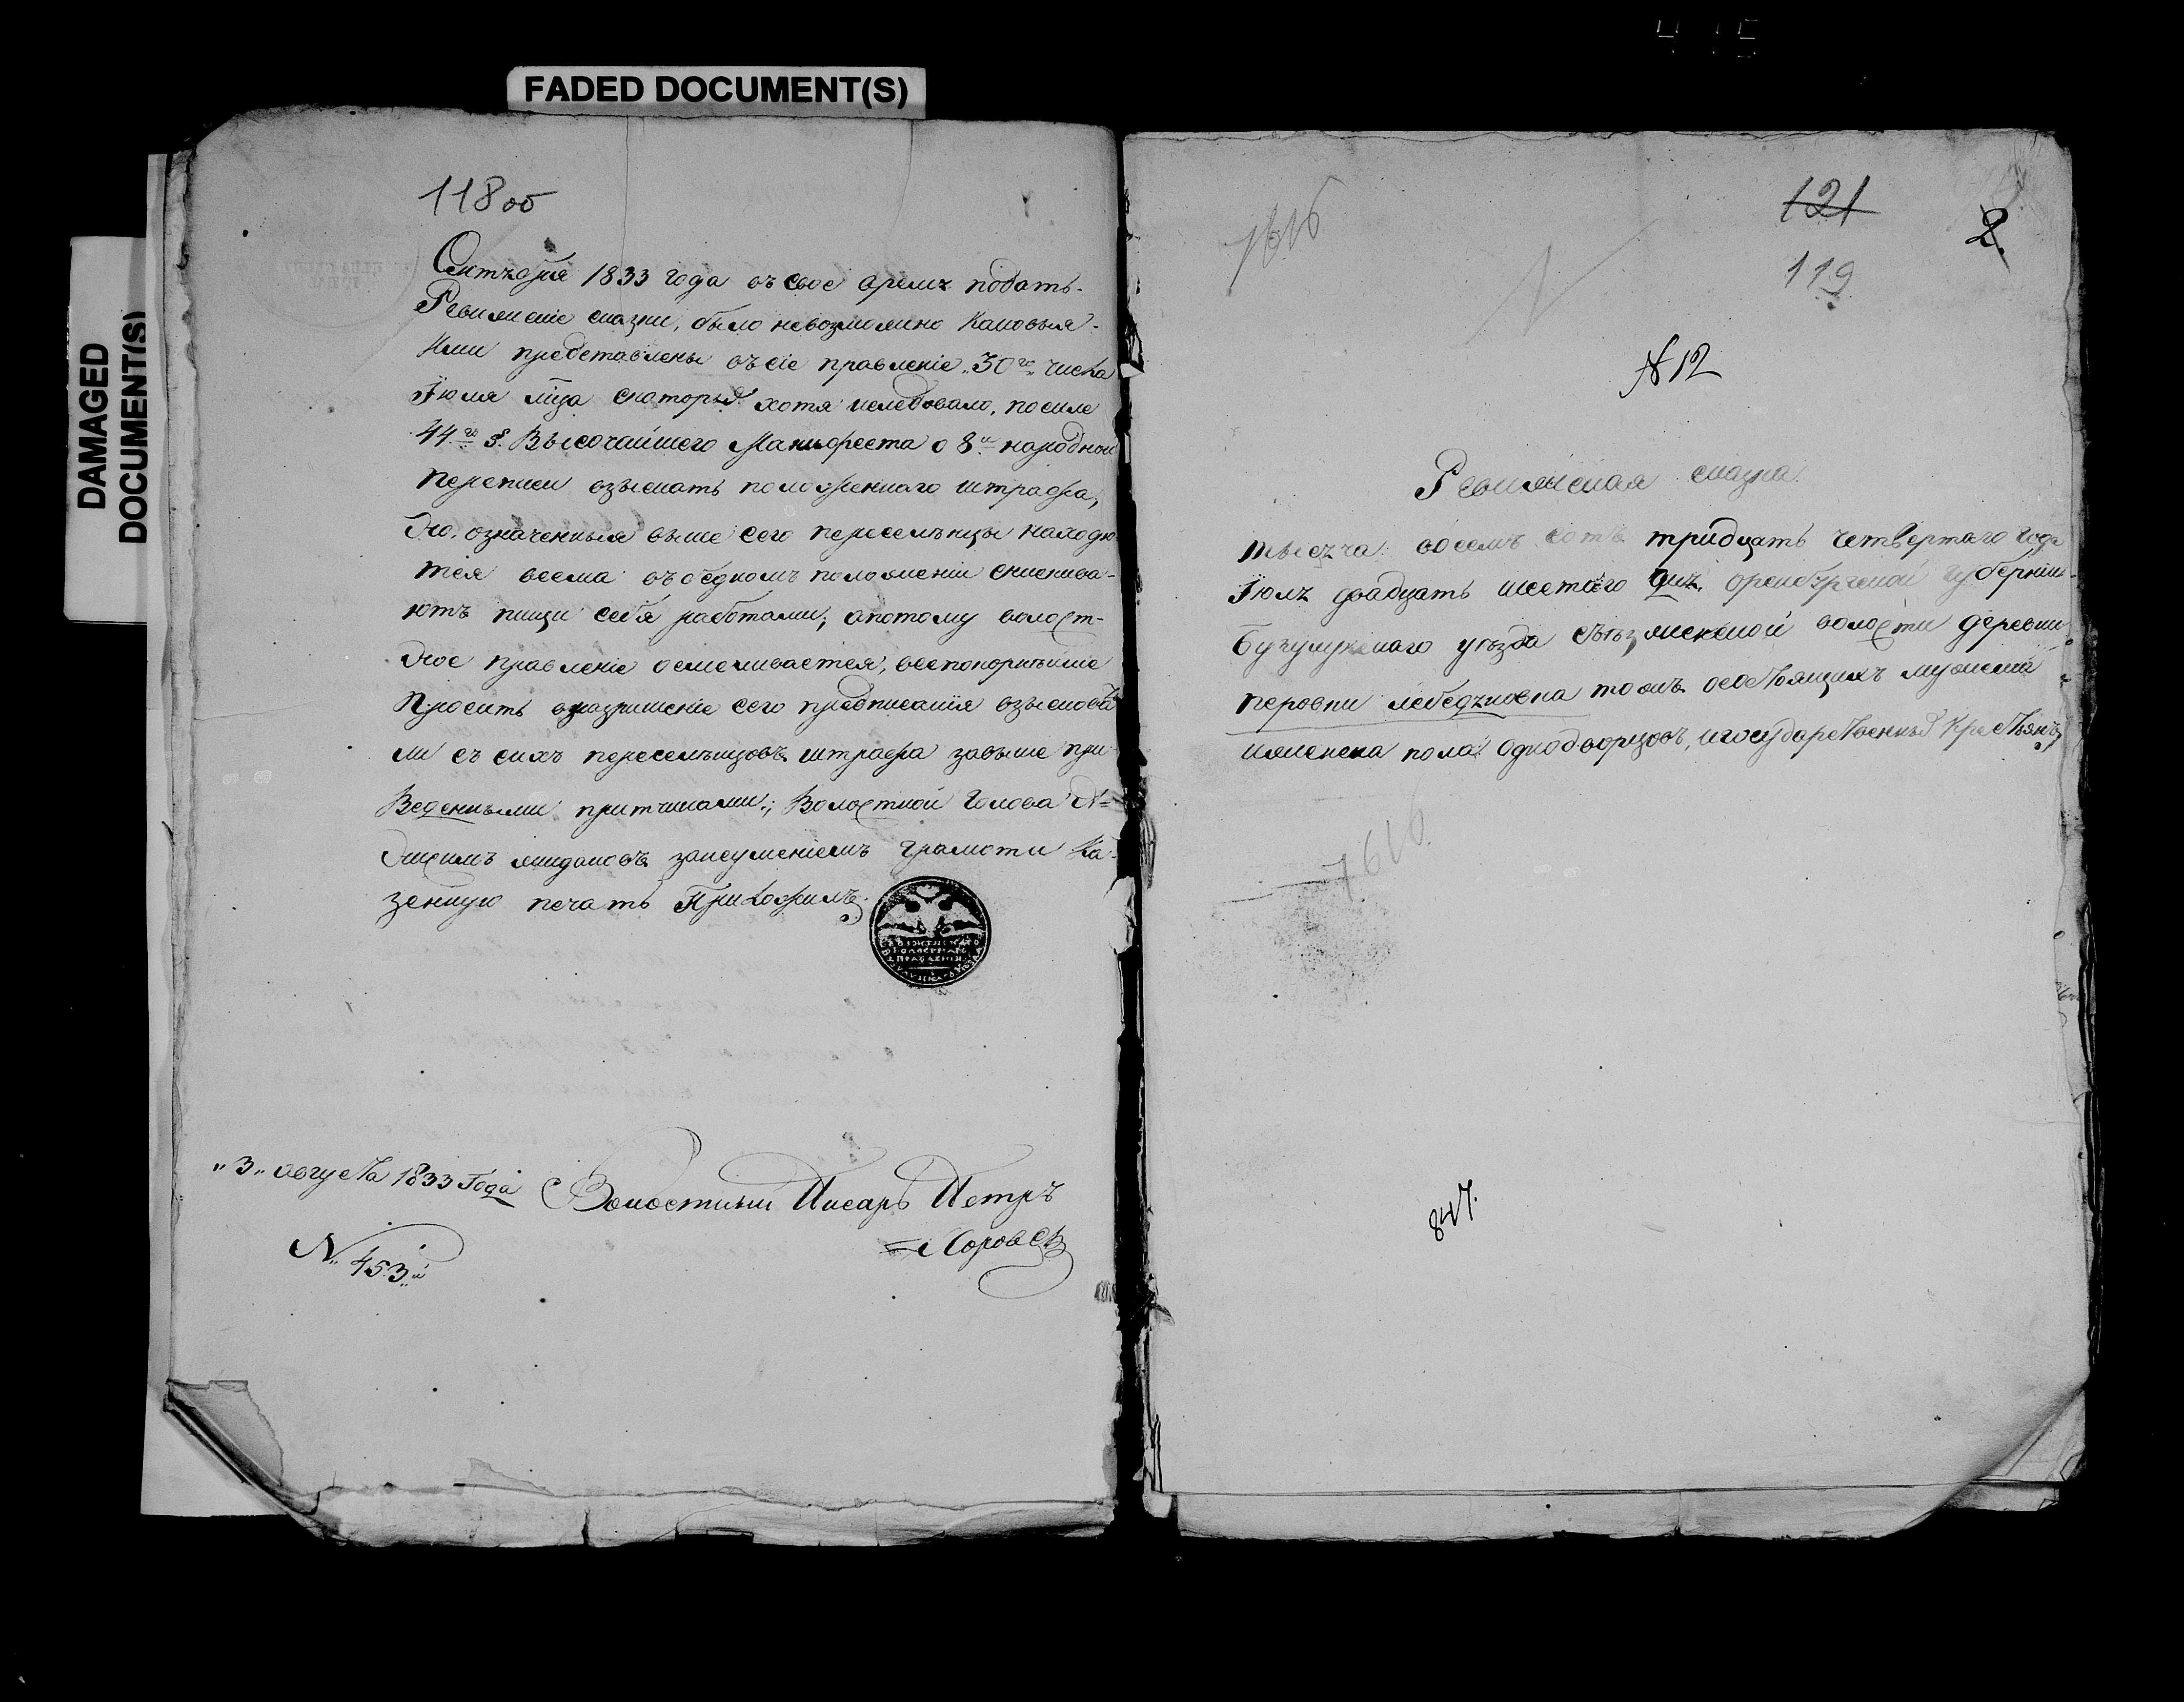 FADED DOCUMENT(S)
DAMAGED
DOCUMENT(S)
118 об
Сентября 1833 года въ свое время подать
Ревижскіе сказки, было невозможно каковыя
ими представлены въ сіе правленіе „30го„ числа
Июля мца скоторыхъ хотя иследовало, посиле
44го §. Высочайшего Манифеста о 8й народной
переписи взыскать положеннаго штрафа,
Но, означенныя выше сего переселѣнцы находю
тся весма въ бедномъ положеніи снискива-
ютъ пищи себя работами; апотому волост-
ное правленіе осмеливается, всепокорнейше
просить вразришеніе сего предписанія взысковать
ли съ сихъ переселенцовъ штрафа завыше при
веденными притчинами; Волостной Голова
занеуменіемъ грамоти Ка-
зенную печать Приложилъ
ВОЛОСТНАГО
ПРАВЛЕНІЯ
„3„ августа 1833 Года
Волостный Писарь Петръ
№ 453й
121
2.
119
№ 12
Ревижская сказка
тысеча восемь сотъ тридцать четвертаго года
Июля двадцать шестаго дня, оренбургской губерніи
Бугулукскаго уѣзда волости деревни
перовки лебедзковка тожъ осостоящихъ мужеска
иженска пола однодворцовъ, игосударственныхъ крестьянъ
7616.
847.